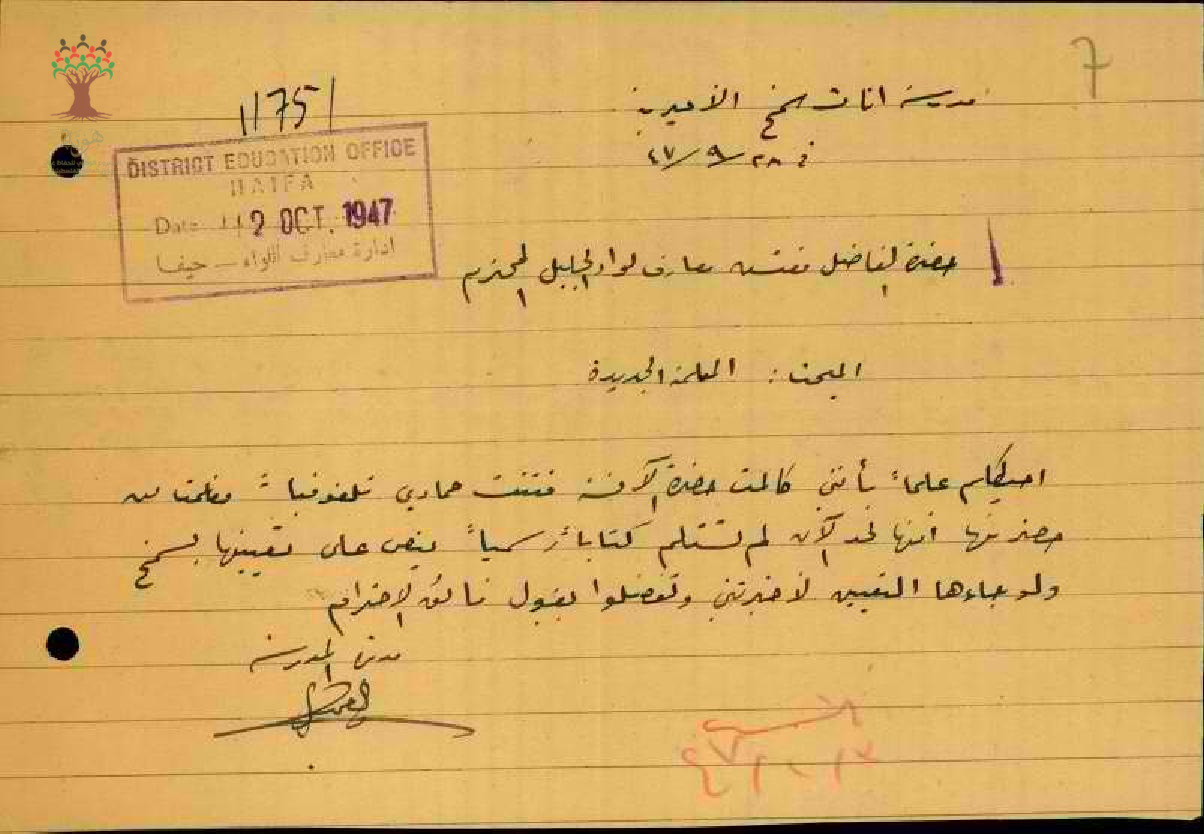 7
مدرسة اناث سمخ الأميرية
في ٢٨/٩/٤٧
11751
DISTRICT EDUCATION OFFICE
HAIFA
Date 2 OCT. 1947
ادارة معارف اللواء - حيفا
حضرة الفاضل مفتش معارف لواء الجليل المحترم
المبحث: المعلمة الجديدة
احيطكم علماً بأنني كالمت حضرة الآنسة حمادي تلفونياً فعلمت من
حضرتها انها لحد الآن لم تستلم كتاباً رسمياً ينص على تعيينها بسمخ
ولو جاءها التعيين لأخبرتني وتفضلوا بقبول فائق الاحترام
مديرة المدرسة